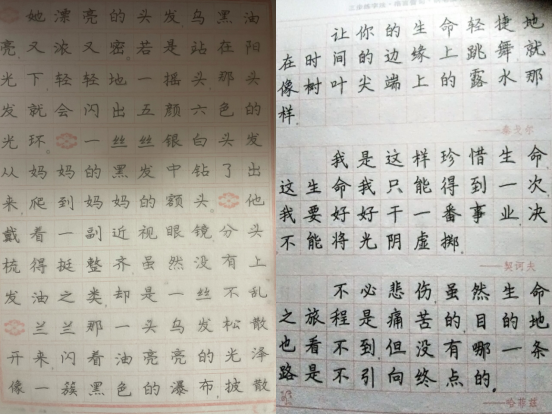 她漂亮的头发乌黑油
亮又浓又密若是站在阳
光下轻轻地一摇头那头
发就会闪出五颜六色的
光环 一丝丝银白头发
从妈妈的黑发中钻了出
来爬到妈妈的额头 他
戴着一副近视眼镜,分头
梳得挺整齐虽然没有上
发油之类却是一丝不乱
兰兰那一头乌发松散
开来闪着油亮亮的光泽
像一簇黑色的瀑布,披散
让你的生命轻捷地
在时间的边缘上跳舞就
像树叶尖端上的露水那
样.
——泰戈尔
我是这样珍惜生命
这生命我只能得到一次
我要好好干一番事业,决
不能将光阴虚掷.
——契诃夫
不必悲伤,虽然生命
之旅程是痛苦的,目的地
也看不到,但没有哪一条
路是不引向终点的.
——哈菲兹